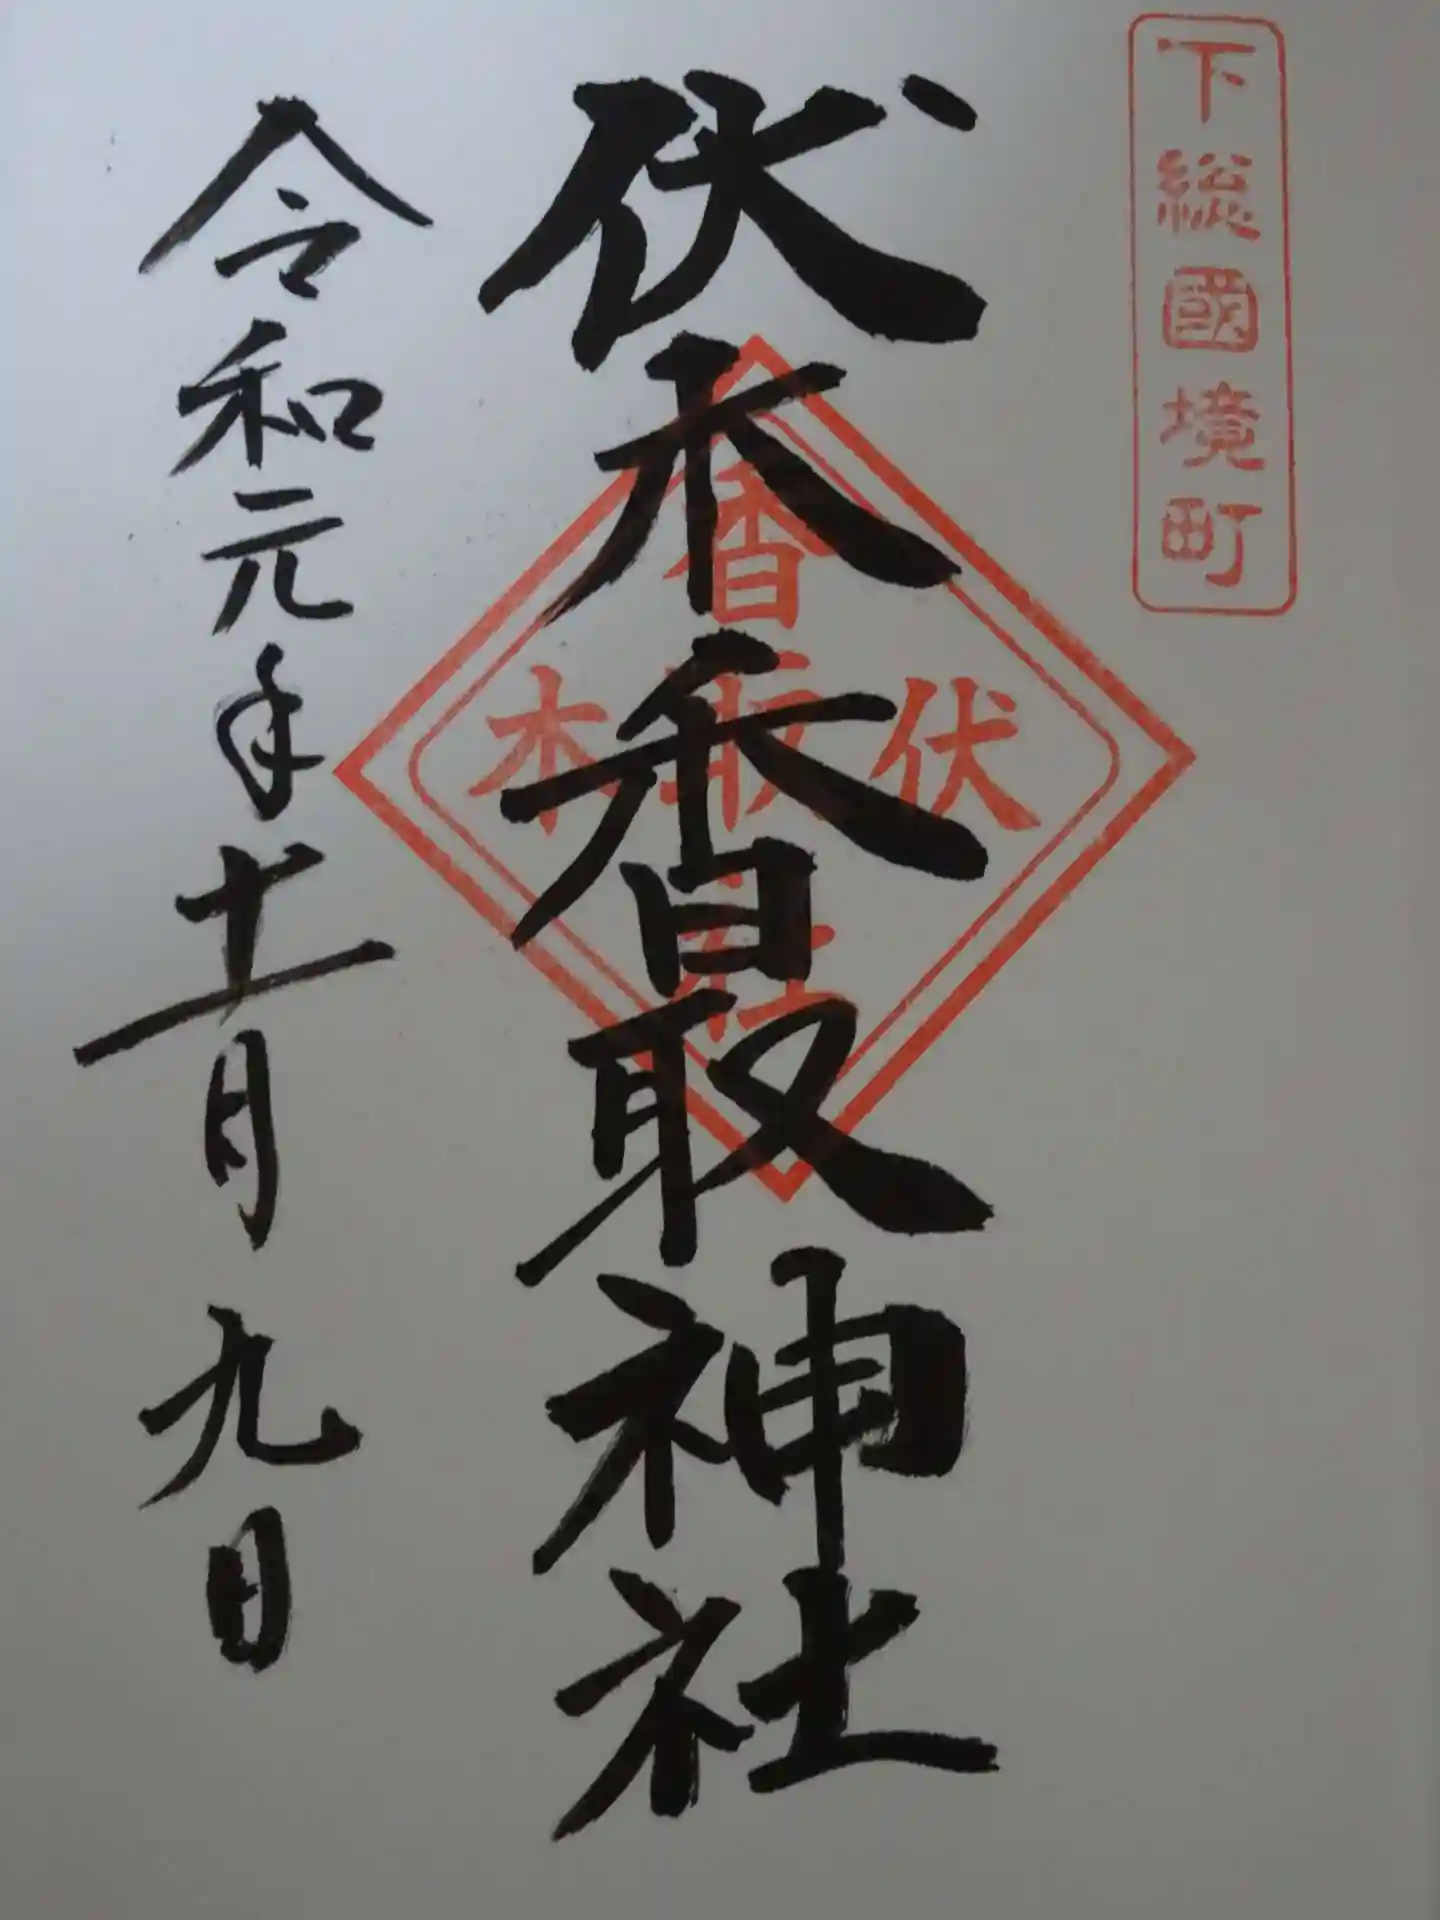 下総國境町
伏木香取神社
香
伏取木
社
令和元年十一月九日